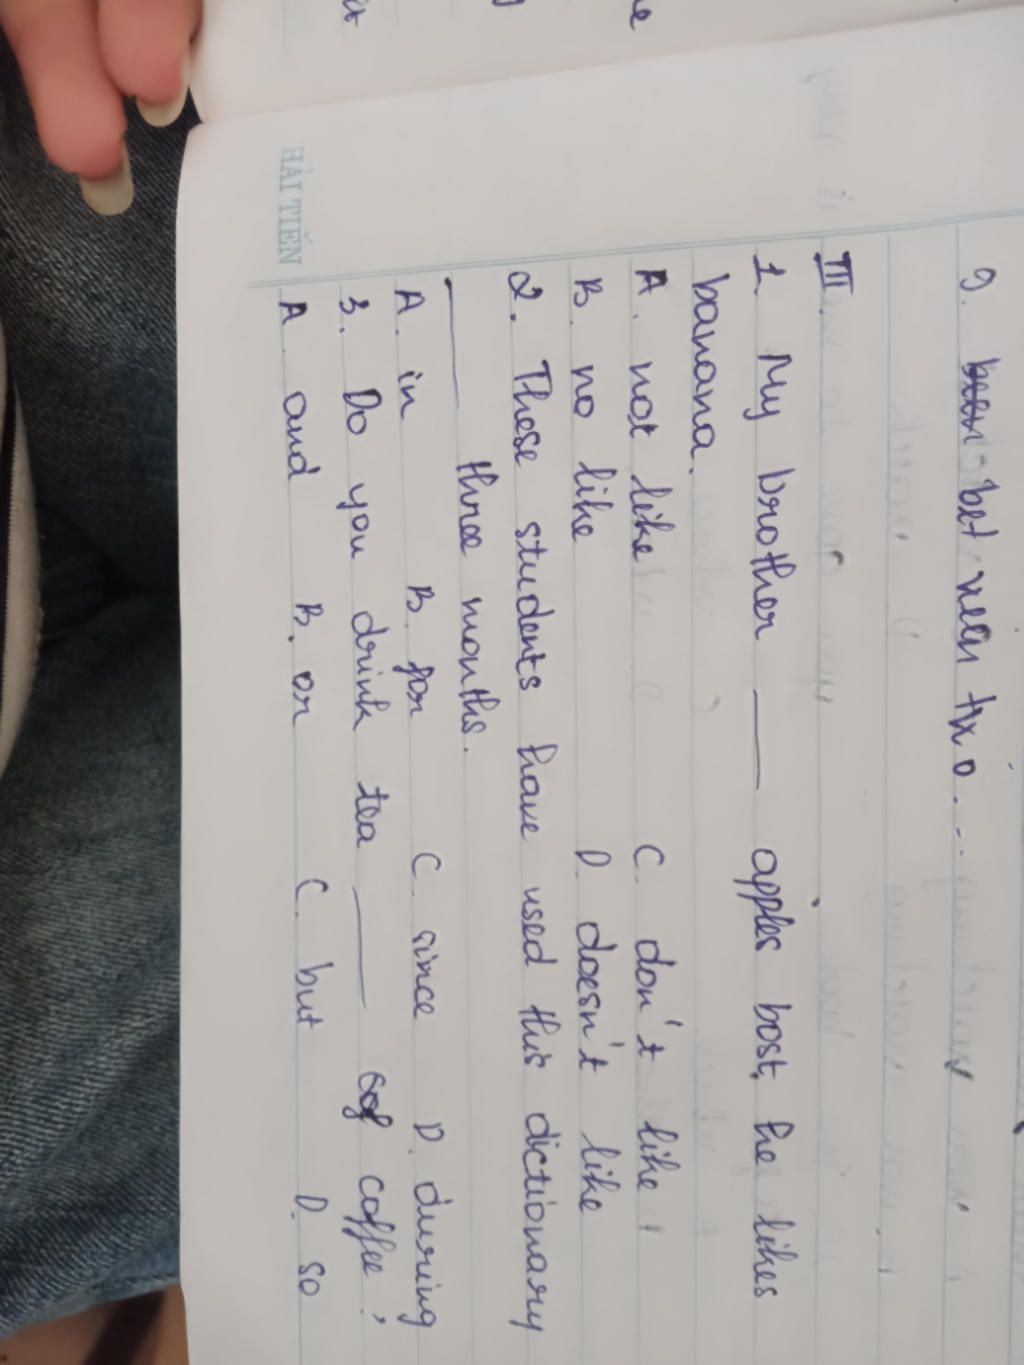 9. bet nen txo...
III.
1. My brother ____ apples bost, he likes
banana.
A. not like C. don't like
B. no like D. doesn't like
2. These students have used this dictionary
____ three months.
A. in B. for C. since D. during
3. Do you drink tea ____ coffee?
A. and B. or C. but D. so
HẢI TIẾN